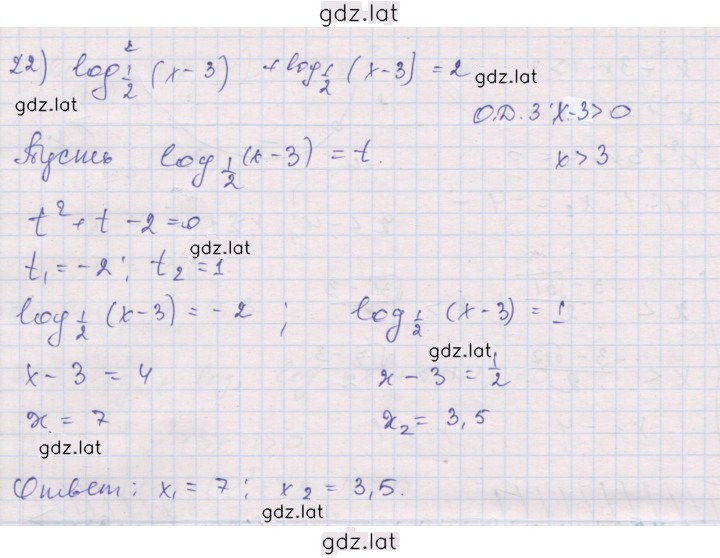 gdz.lat
22) log²_{1/2} (x-3) + log_{1/2} (x-3) = 2 gdz.lat
gdz.lat
О.Д.З: x-3>0
Пусть log_{1/2} (x-3) = t.
x>3
t² + t - 2 = 0
gdz.lat
t₁ = -2; t₂ = 1
log_{1/2} (x-3) = -2; log_{1/2} (x-3) = 1
gdz.lat
x - 3 = 4 x - 3 = 1/2
x = 7 x₂ = 3,5
gdz.lat
Ответ: x₁ = 7; x₂ = 3,5.
gdz.lat
gdz.lat